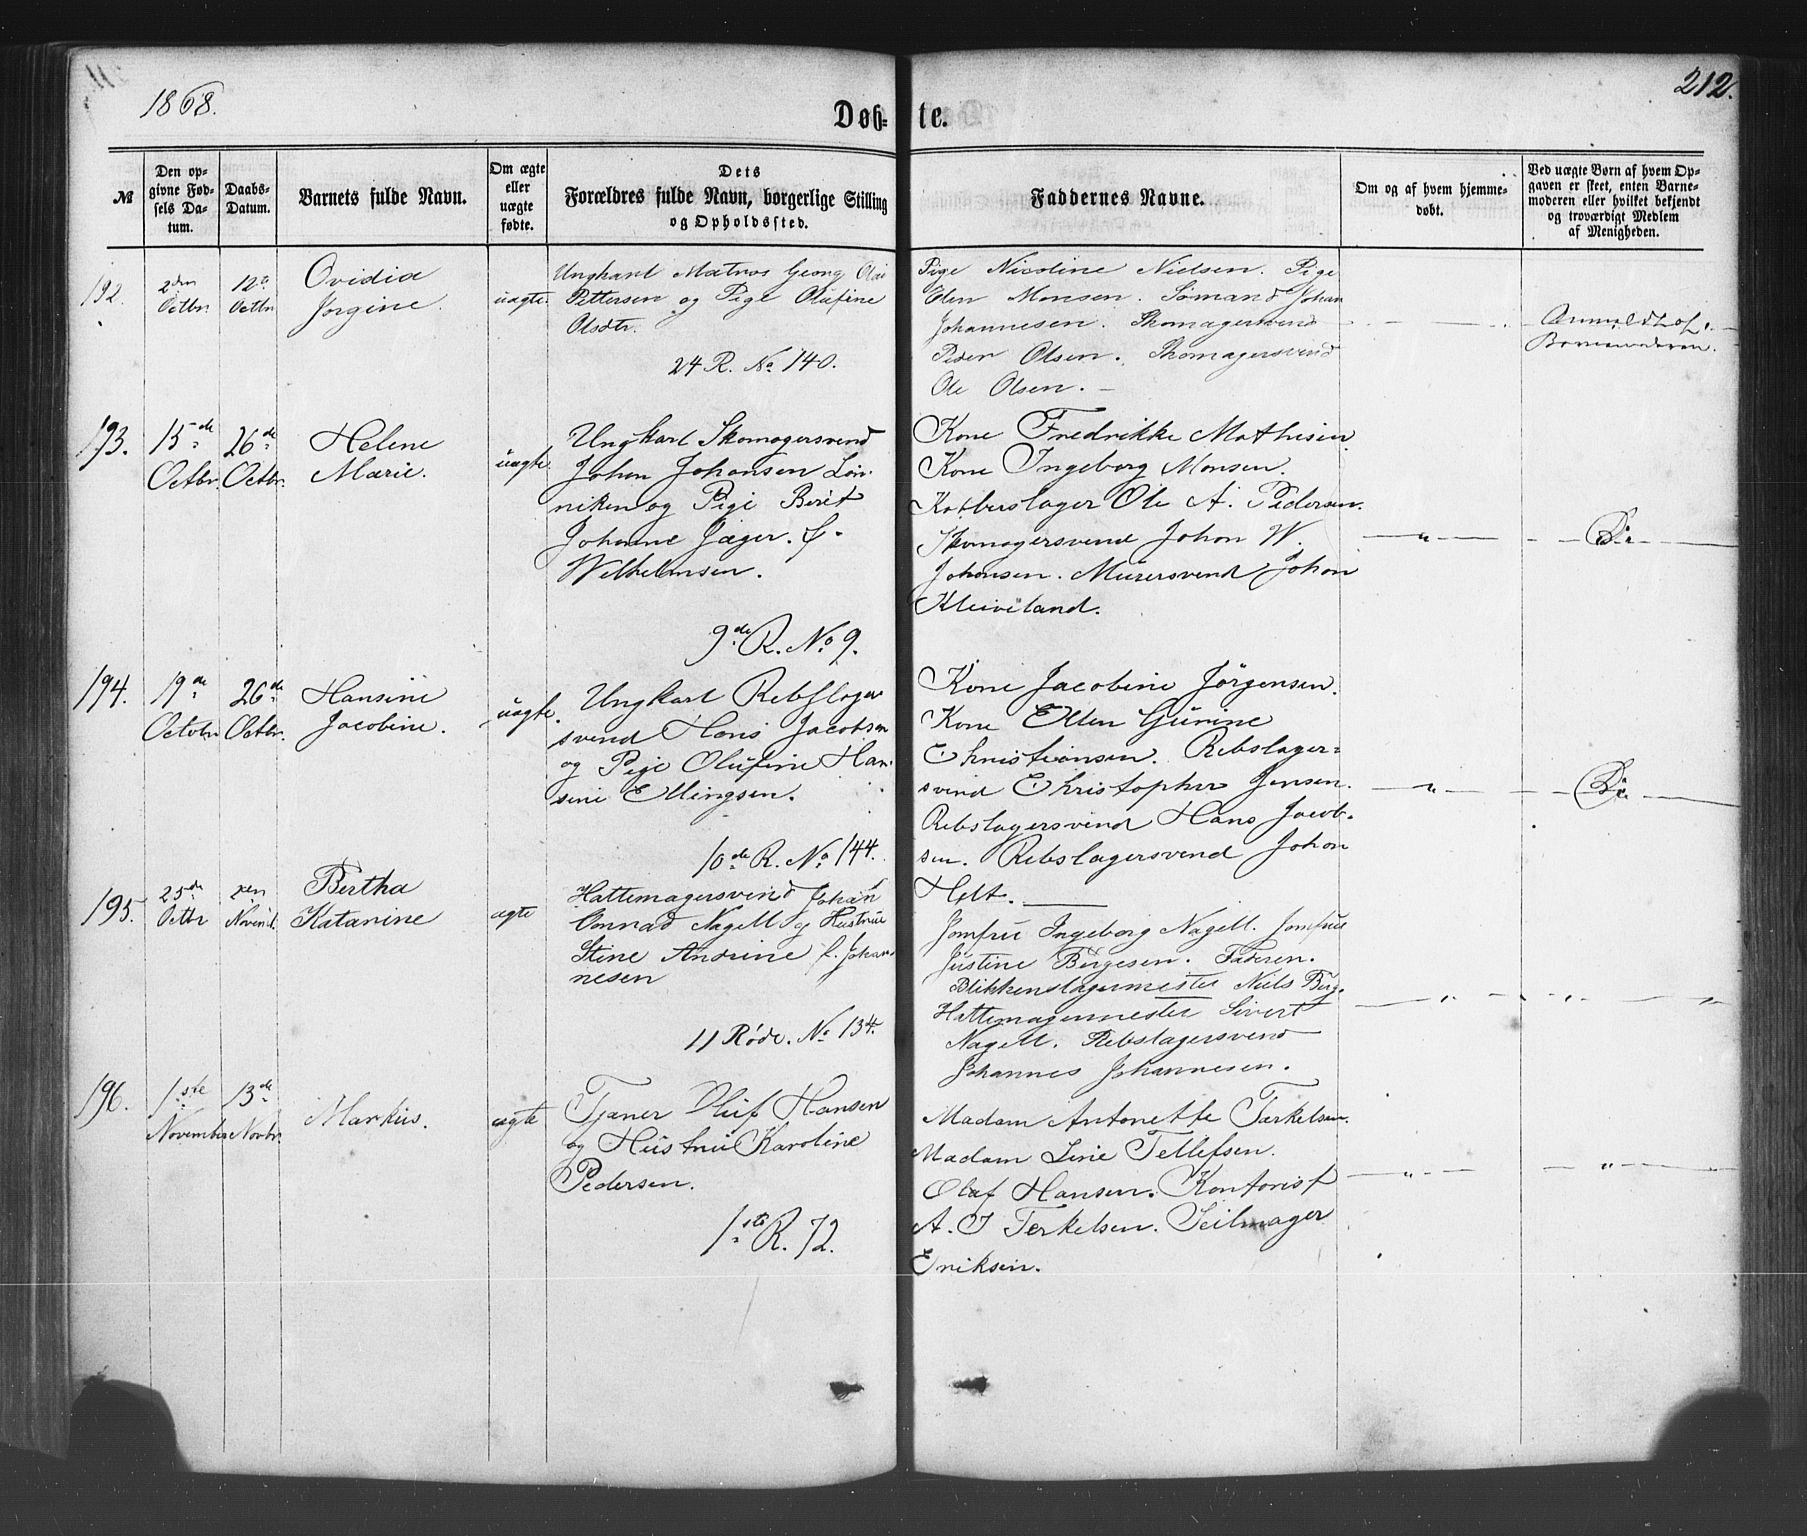 1868.
212.
Døb-
te.
№
Den op-
givne Fød-
sels Da-
tum.
Daabs-
Datum.
Barnets fulde Navn.
Om ægte
eller
uægte
fødte.
Dets
Forældres fulde Navn, borgerlige Stilling
og Opholdssted.
Faddernes Navne.
Om og af hvem hjemme-
døbt.
Ved uægte Børn af hvem Op-
gaven er skeet, enten Barne-
moderen eller hvilket bekjendt
og troværdigt Medlem
af Menigheden.
192.
2den
Octbr.
12te
Octbr
Ovidia
Jorgine.
uægte.
Ungkarl Matros Georg Olai
Pettersen og Pige Olufine
Olsdtr.
24 R. No 140.
Pige Nicoline Nielsen. Pige
Elen Monsen. Sömand Johan
Johannesen. Skomagersvend
Peder Olsen. Skomagersvend
Ole Olsen.
Anmeldt af
Barnemoderen.
193.
15de
Octbr.
26de
Octbr.
Helene
Marie.
uægte.
Ungkarl Skomagersvend
Johan Johansen Lön-
niken og Pige Berit
Johanne Jæger. f.
Wilhelmsen.
9de R. No 9.
Kone Fredrikke Mathisen.
Kone Ingeborg Monsen.
Kobberslager Ole A. Pedersen.
Skomagersvend Johan W.
Johansen. Murersvend Johan
Kleiveland.
— „ —
Do.
194.
19de
Octobr
26de
Octbr.
Hansine
Jacobine.
uægte.
Ungkarl Rebslager
svend Hans Jacobsen
og Pige Olufine Han-
sine Ellingsen.
10de R. No 144.
Kone Jacobine Jörgensen.
Kone Ellen Gurine
Christiansen. Rebslager=
svend Christopher Jensen.
Rebslagersvend Hans Jacob-
sen. Rebslagersvend Johan
Helt.
— „ —
Do.
195.
25de
Octbr
Novemb.
Bertha
Katarine
ægte
Hattemagersvend Johan
Conrad Nagell og Hustrue
Stine Andrine f. Johan-
nesen
11 Røde. No 134.
Jomfru Ingeborg Nagell. Jomfrue
Justine Börgesen. Faderen.
Blikkenslagermester Niels Berg.
Hattemagermester Sivert
Nagell. Rebslagersvend
Johannes Johannesen.
— „ —
— „
196.
1ste
November
13de
Novbr.
Markus.
ægte
Tjæner Oluf Hansen
og Hustrue Karoline
Pedersen.
1ste R. 72.
Madam Antonette Terkelsen.
Madam Line Tellefsen.
Olaf Hansen. Kontorist
A. T Terkelsen. Seilmager
Eriksen.
— „ —
— „ —